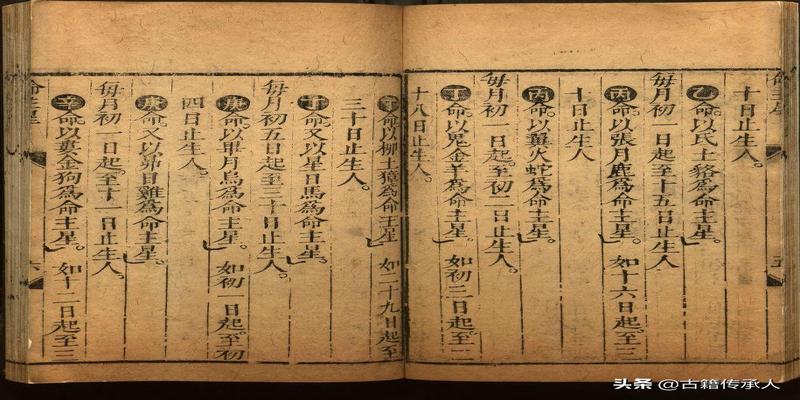 十日止生人。
乙命以氐土貉為命主星。
每月初一日起至十五日止生人
丙命以張月鹿為命主星。如十六日起至三
十日止生人
丙命以翼火蛇為命主星。
每月初一日起至初二日止生人。
丁命以鬼金羊為命主星。如初三日起至二
十八日止生人。
丁命以柳土獐為命主星 如二十九日起至
三十日止生人。
命又以星日馬為命主星。
每月初五日起至二十日止生人。
庚命以畢月烏為命主星。如初一日起至初
四日止生人。
庚命又以昴日雞為命主星。
每月初一日起至十一日止生人。
辛命以婁金狗為命主星。如十二日起至三
命主星
六
头条 @古籍传承人